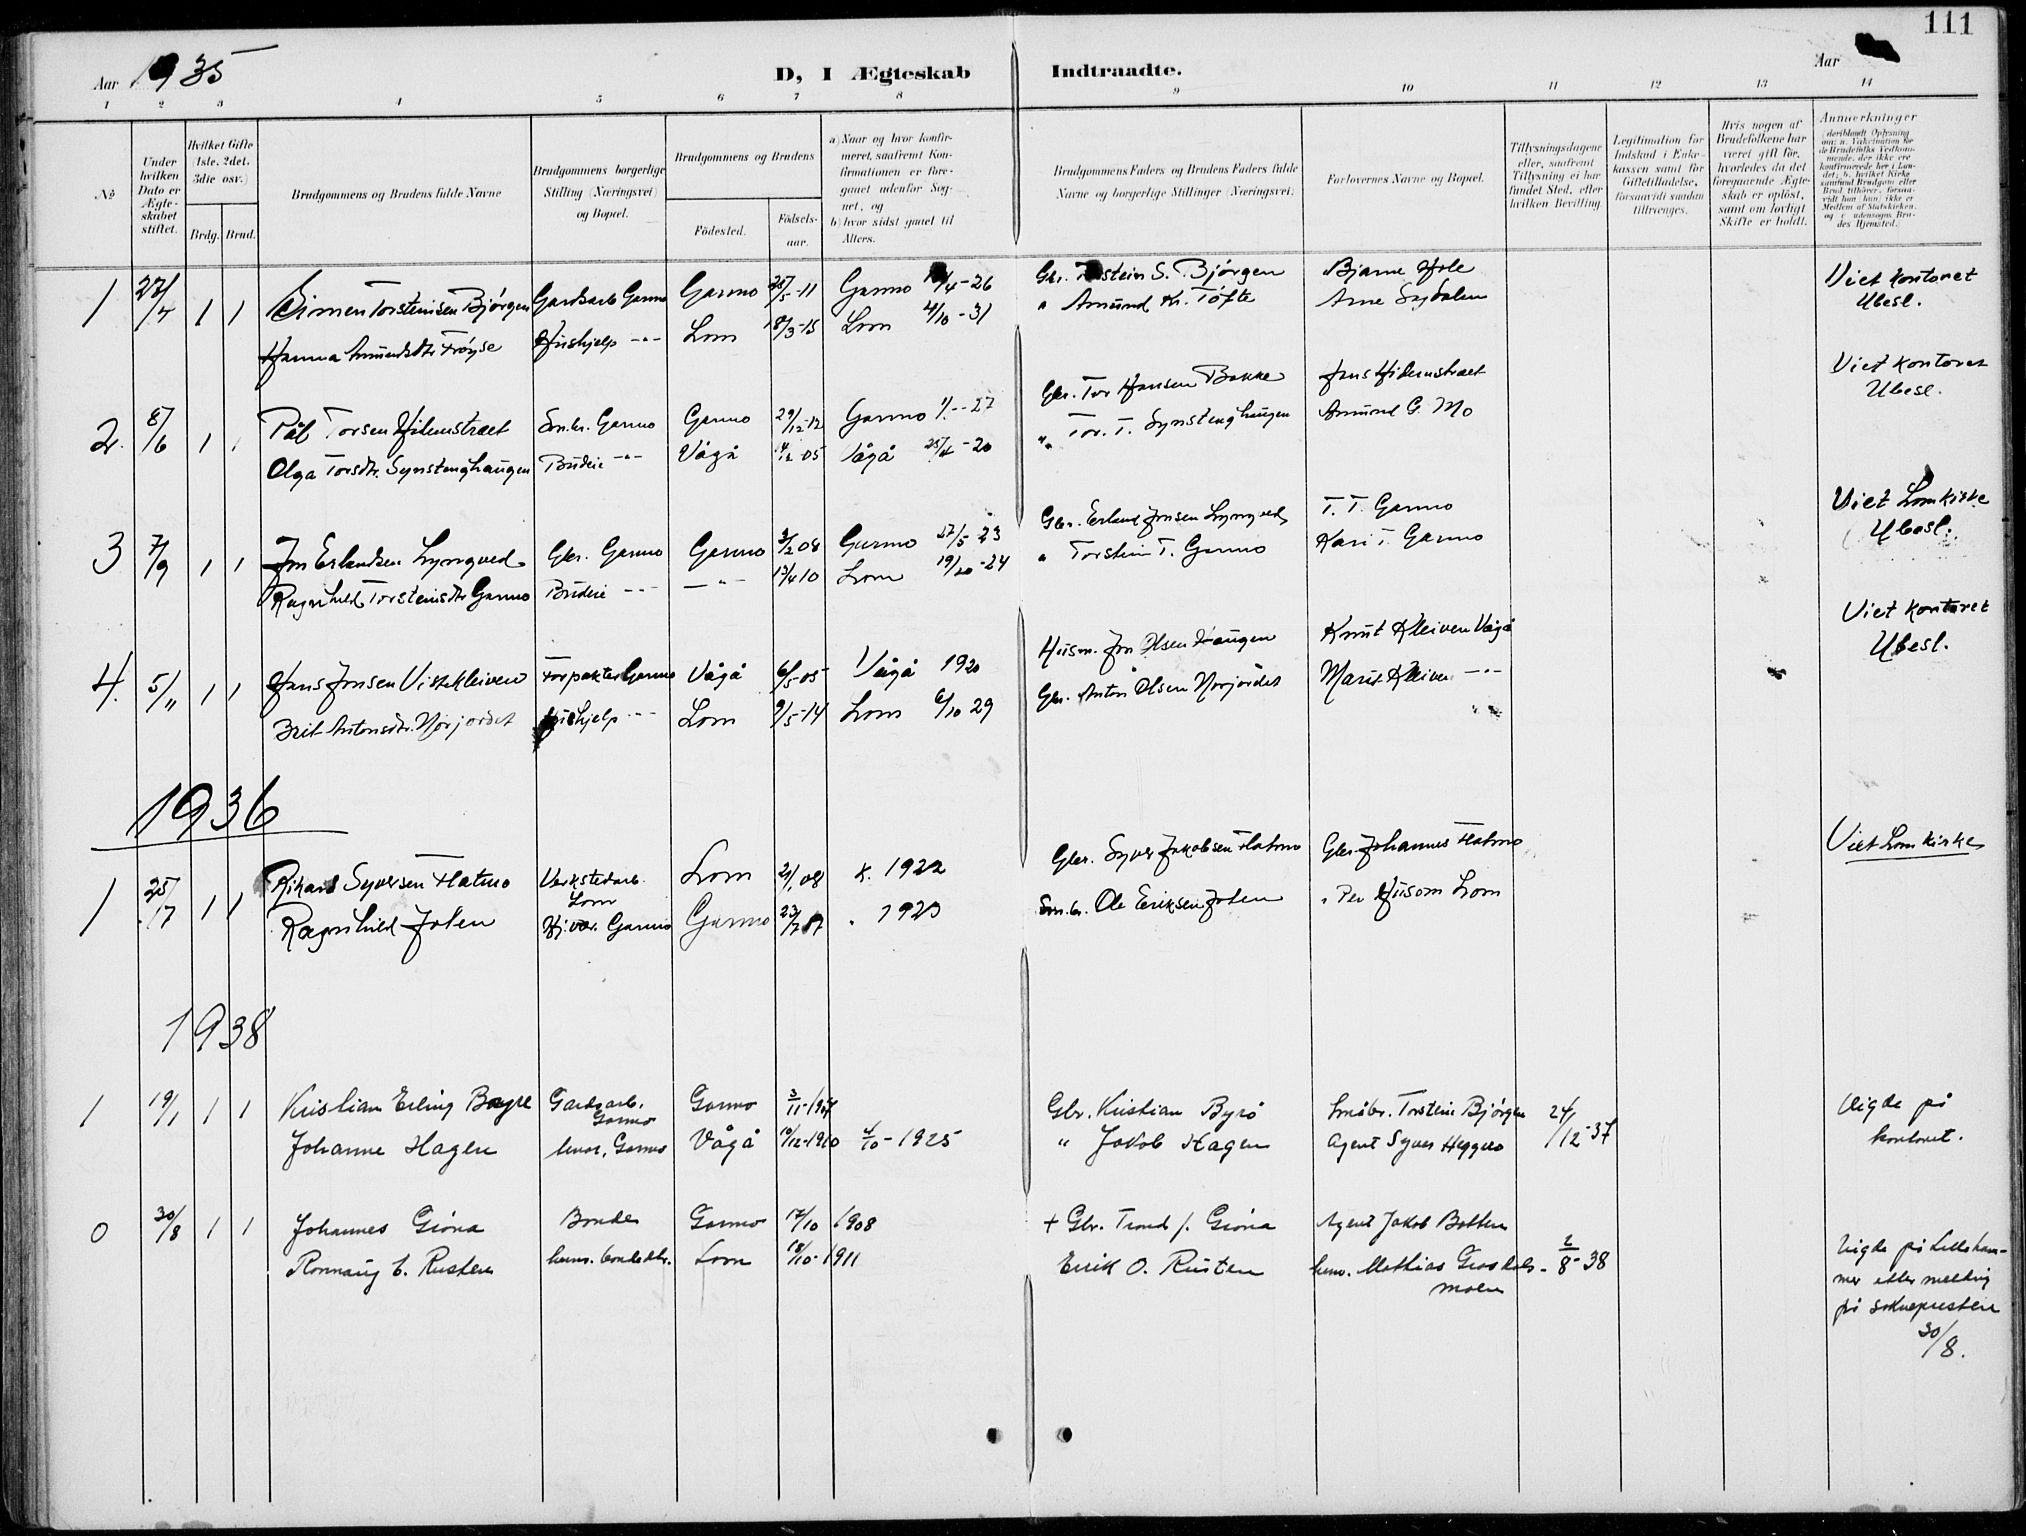 111
Aar 1935
D, I Ægteskab Indtraadte.
Aar
1 2 3 4 5 6 7 8 9 10 11 12 13 14
No
Under hvilken Dato er Ægteskabet stiftet.
Hvilket Gifte (1ste. 2det. 3die osv.)
Brdg. Brud.
Brudgommens og Brudens fulde Navne
Brudgommens borgerlige Stilling (Næringsvei) og Bopæl.
Brudgommens og Brudens
Fødested.
Fødselsaar.
a) Naar og hvor konfirmeret, saafremt Konfirmationen er foregaaet udenfor Sognet, og
b) hvor sidst gaaet til Alters.
Brudgommens Faders og Brudens Faders fulde Navne og borgerlige Stillinger (Næringsvei.
Forlovernes Navne og Bopæl.
Tillysningsdagene eller, saafremt Tillysning ei har fundet Sted, efter hvilken Bevilling.
Legitimation for Indskud i Enkekassen samt for Giftetilladelse, forsaavidt saadan tiltrænges.
Hvis nogen af Brudefolkene har været gift før, hvorledes da det foregaaende Ægteskab er opløst, samt om lovligt Skifte er holdt.
Anmærkninger
1 27/4 1 1 Simen Torsteinsen Bjørgen Gardsarb Garmo Garmo 25/5-11 Garmo /4-26 Gbr. Torstein S. Bjørgen Bjarne Hole Viet kontoret
Hanna Amundsdtr Frøyse Hushjelp -"- Lom 18/3-15 Lom 4/10-31 " Amund Kr. Tøfte Arne Sygdalen Ubesl.
2. 8/6 1 1 Pål Torsen Hilemstræt Smbr. Garmo Garmo 29/12-12 Garmo -27 Gbr. Tor Hansen Bakke Hans Hilemstræt Viet kontoret
Olga Torsdtr. Synstenghaugen Budeie -"- Vågå 4/12-05 Vågå 25/4-20 " Tor. T. Synstenghaugen Amund G. Mo Ubesl.
3 7/9 1 1 Jon Erlandsen Lyngved Gbr. Garmo Garmo 3/2 08 Garmo 27/5-23 Gbr. Erland Jonsen Lyngved T. T. Garmo Viet Lomkirke
Ragnhild Torsteinsdtr Garmo Budeie -"- -"- 13/4 10 Lom 19/10-24 " Torstein T. Garmo Kari T. Garmo Ubesl.
4. 5/11 1 1 Hans Jonsen Vistekleiven Forpakter Garmo Vågå 6/5-05 Vågå 1920 Husm. Jon Olsen Haugen Knut Kleiven Vågå Viet kontoret
Brit Antonsdtr. Nørjordet Hushjelp -"- Lom 9/5-14 Lom 6/10 29 Gbr. Anton Olsen Nørjordet Marit Kleiven -"- Ubesl.
1936
1 25/ 17 1 1 Rikard Syversen Flatmo Verkstedarb. Lom Lom 21/1 08 k. 1922 Gbr. Syver Jakobsen Flatmo Gbr Johannes Flatmo Viet Lom kirke
Ragnhild Jolen Hjvær. Garmo Garmo 23/7 " 1923 Smbr. Ole Eriksen Jolen " Per Husom Lom
1938
1 19/1 1 1 Kristian Erling Bøyre Gardsarb. Garmo Garmo 3/11-1907 Gbr. Kristian Byrø Småbr. Torstein Bjørgen 24/12-37 Vigde på
Johanne Hagen hevar, Garmo Vågå 10/12-1910 4/10-1925 " Jakob Hagen Agent Syver Heggen kontoret.
0 30/8 1 1 Johannes Grøna Bonde Garmo 17/10 1908 + Gbr. Trond J. Grøna Agent Jakob Botten
Ronnaug E. Rusten Lom 18/10-1911 Erik O. Rusten Mathias moen 2/8-38 Vigde på Lilleham-
mer etter melding
på soknepresten
30/8.